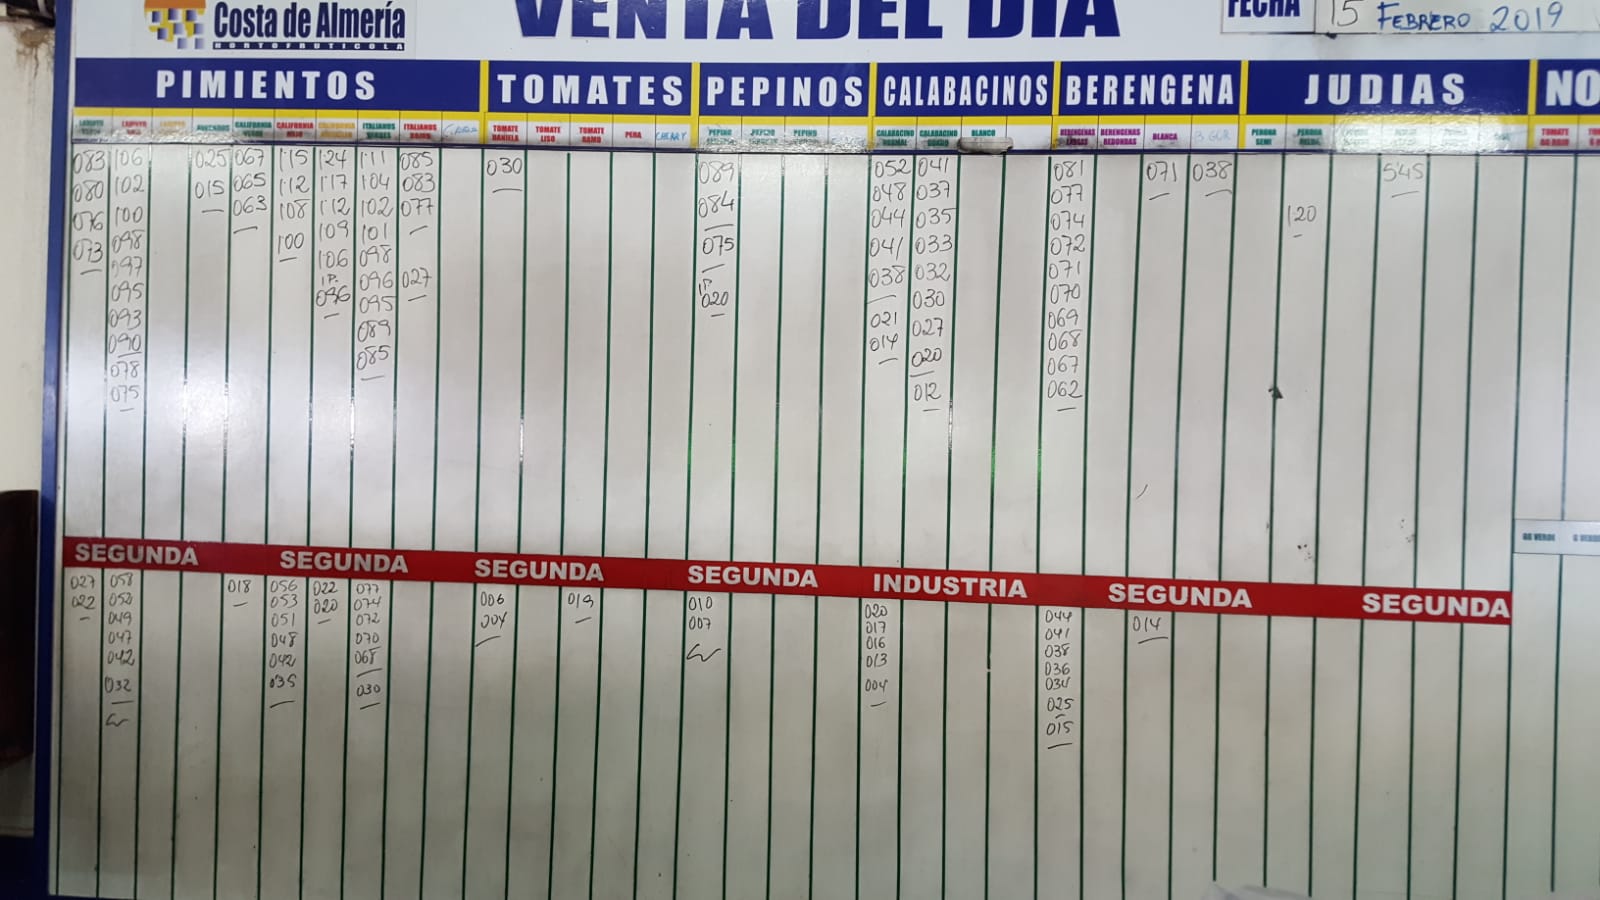 Costa de Almería
HORTOFRUTICOLA
VENTA DEL DIA
FECHA 15 FEBRERO 2019
PIMIENTOS TOMATES PEPINOS CALABACINOS BERENGENA JUDIAS NO
LAMUYO ROJO CALIFORNIA VERDE CALIFORNIA ROJO CALIFORNIA AMARILLO ITALIANOS VERDES ITALIANOS ROJOS TOMATE DANIELA TOMATE LISO TOMATE RAMO PERA CHERRY PEPINO PEPINO CALABACINO NORMAL CALABACINO GORDO BLANCO BERENGENAS LARGAS BERENGENAS REDONDAS BLANCA PERONA SEMI PERONA TOMATE
083 106 025 067 115 124 111 085 030 089 052 041 081 071 038 545
080 102 015 065 112 117 104 083 084 048 037 077 120
076 100 063 108 112 102 077 075 044 035 074
073 098 100 109 101 027 1P. 041 033 072
097 106 098 020 038 032 071
095 1P. 096 021 030 070
093 096 095 014 027 069
090 089 020 068
078 085 012 067
075 062
SEGUNDA SEGUNDA SEGUNDA SEGUNDA INDUSTRIA SEGUNDA SEGUNDA
GB VERDE
027 058 018 056 022 077 006 019 010 020 044 014
022 050 053 020 074 004 007 017 041
049 051 072 016 038
047 048 070 013 036
042 042 068 004 034
032 035 030 025
015